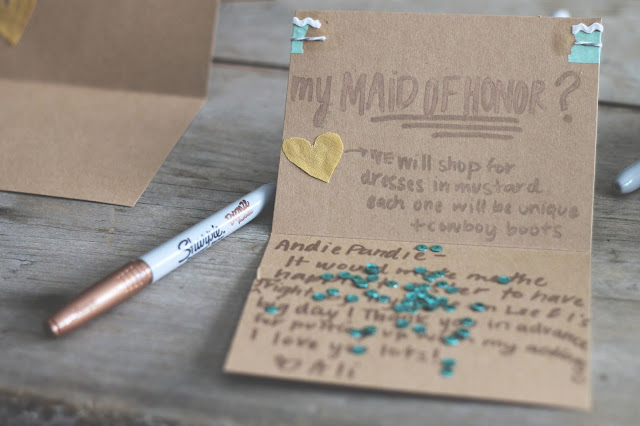 my MAID OF HONOR?
→ WE will shop for
dresses in mustard
each one will be unique
+ cowboy boots
Andie Pandie -
It would make me the
to have
right Lee & I's
big day! Thank you in advance
for my
I love you lots!
♡ Ali
Sharpie